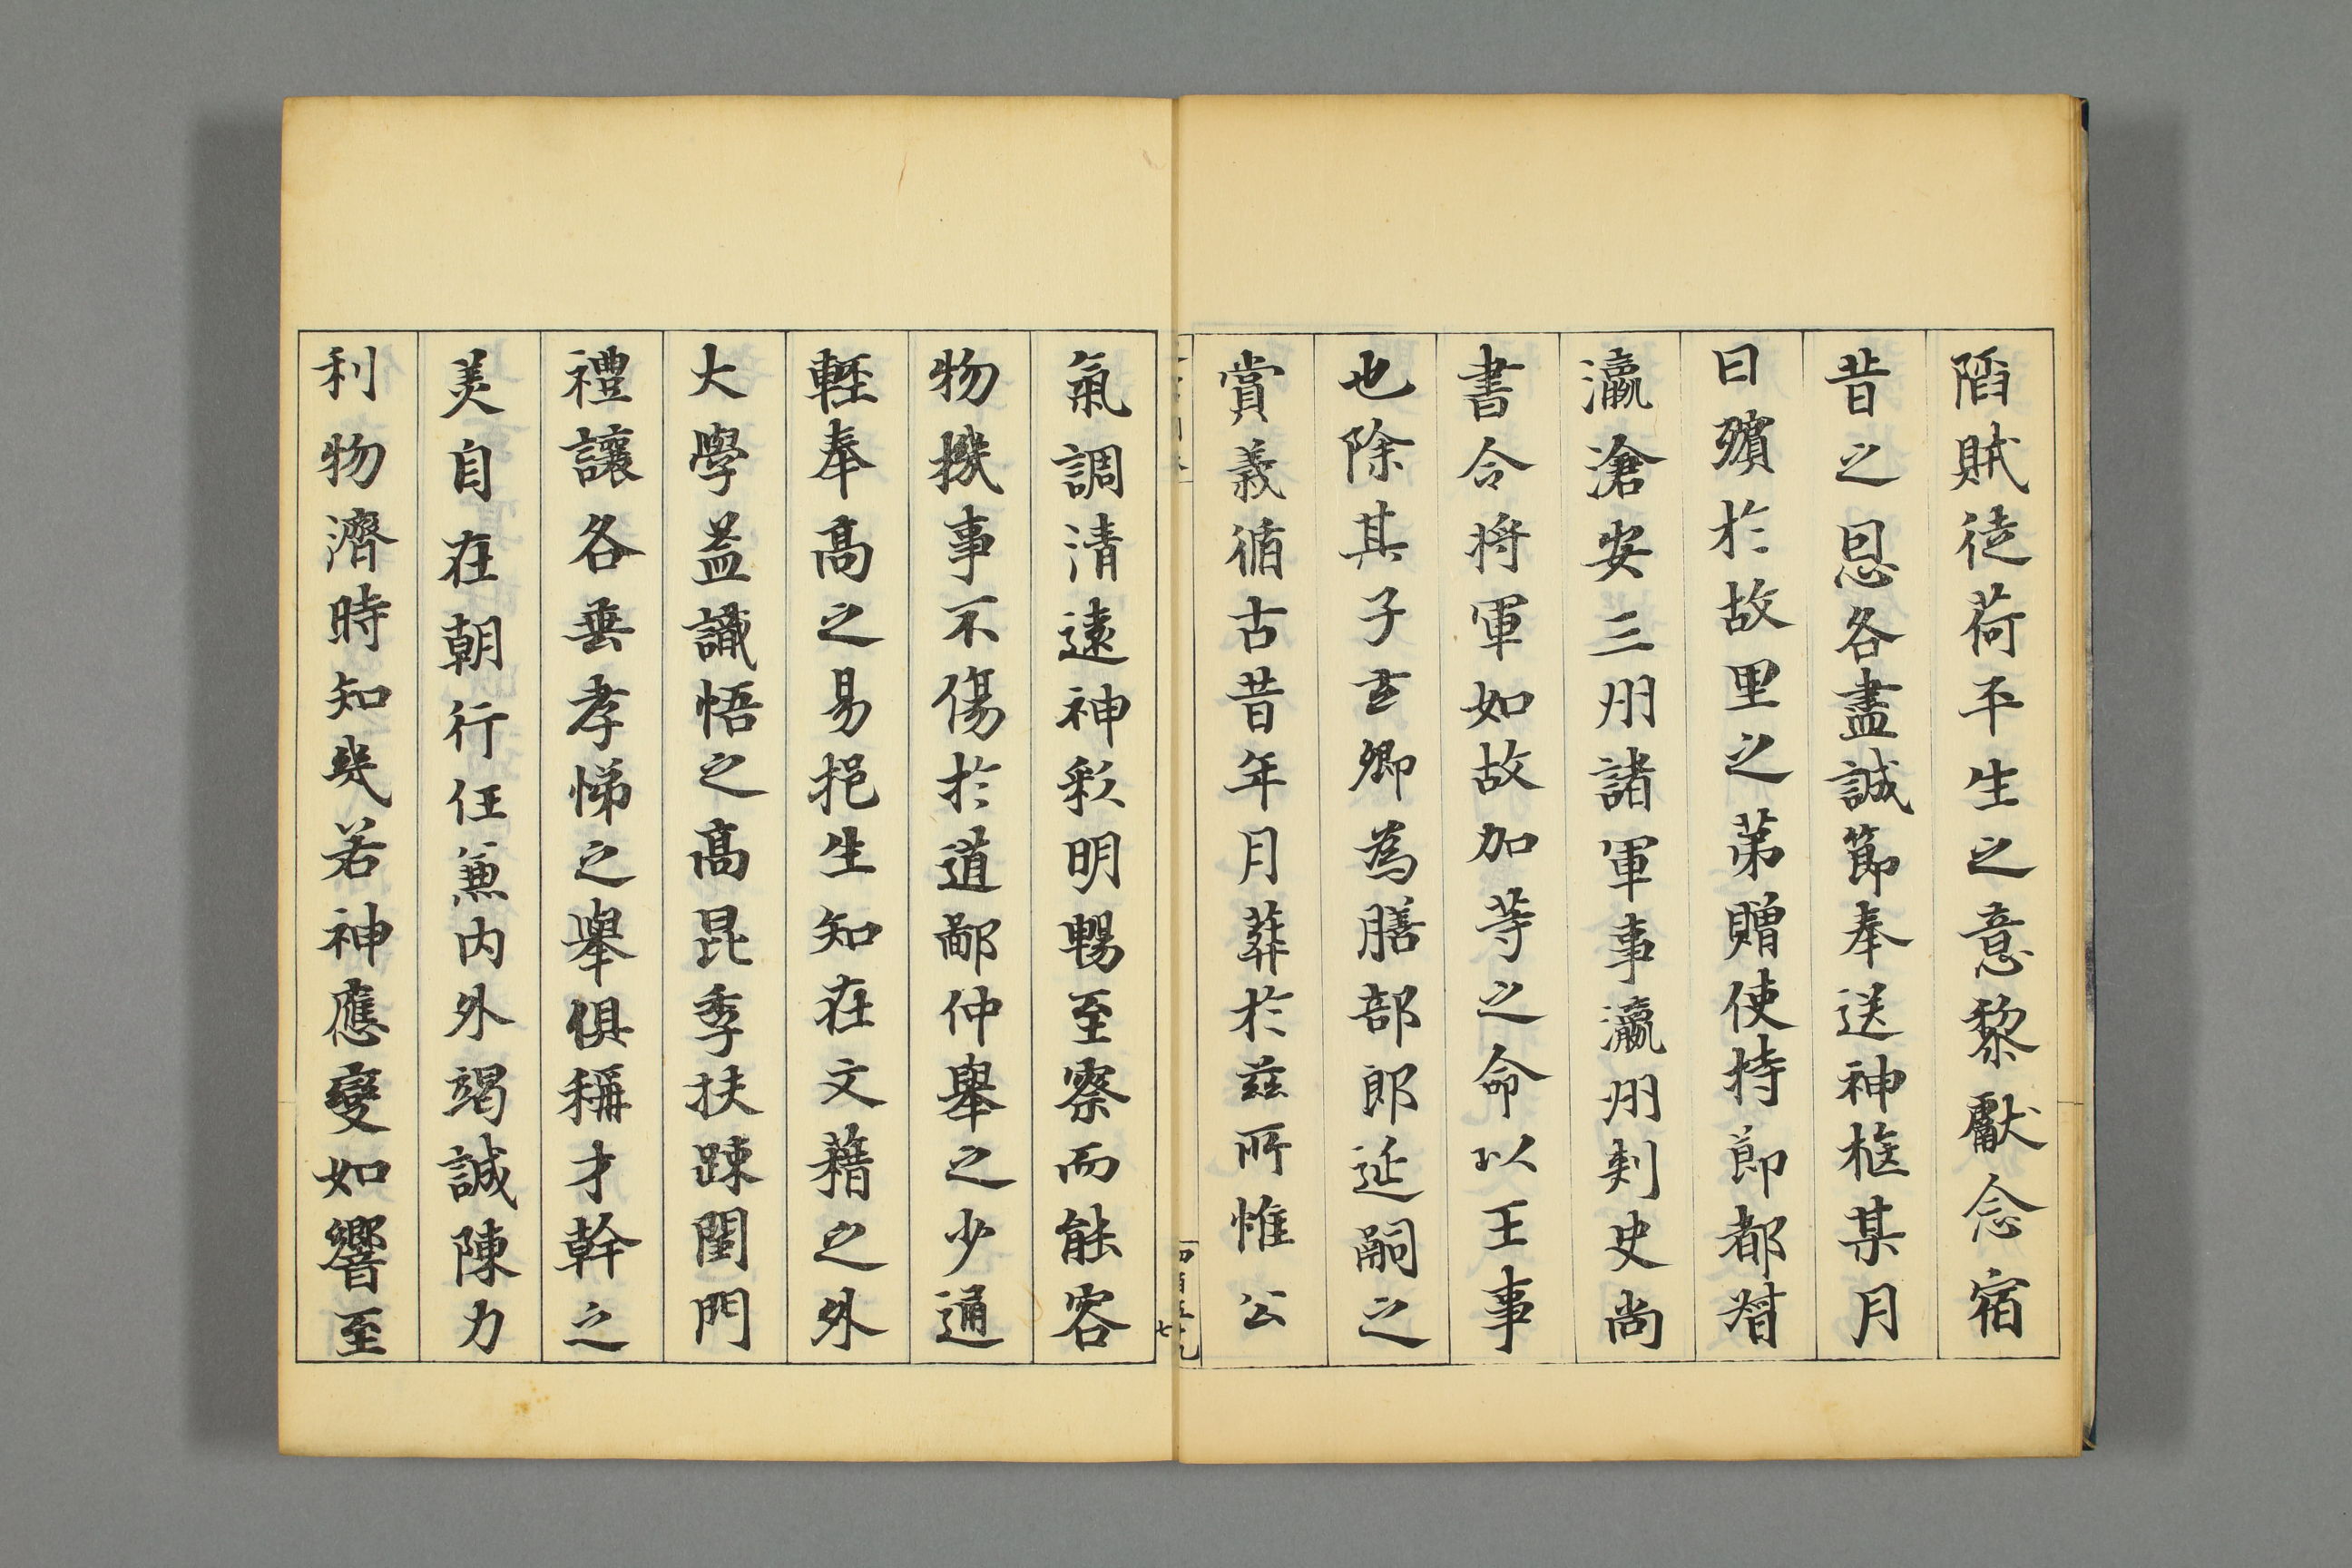 陷賊徒荷平生之意黎獻念宿
昔之恩各盡誠節奉送神柩某月
日殯於故里之苐贈使持節都督
瀛滄安三州諸軍事瀛州刾史尚
書令将軍如故加等之命以王事
也除其子玄卿為膳部郎延嗣之
賞義循古昔年月葬於兹所惟公
氣調清遠神彩明暢至察而能容
物撥事不傷於道鄙仲舉之少通
輊奉高之易挹生知在文藉之外
大學盖識悟之高昆季扶踈閨門
禮讓各垂孝悌之舉俱稱才幹之
美自在朝行任兼内外竭誠陳力
利物濟時知幾若神應變如響至
七